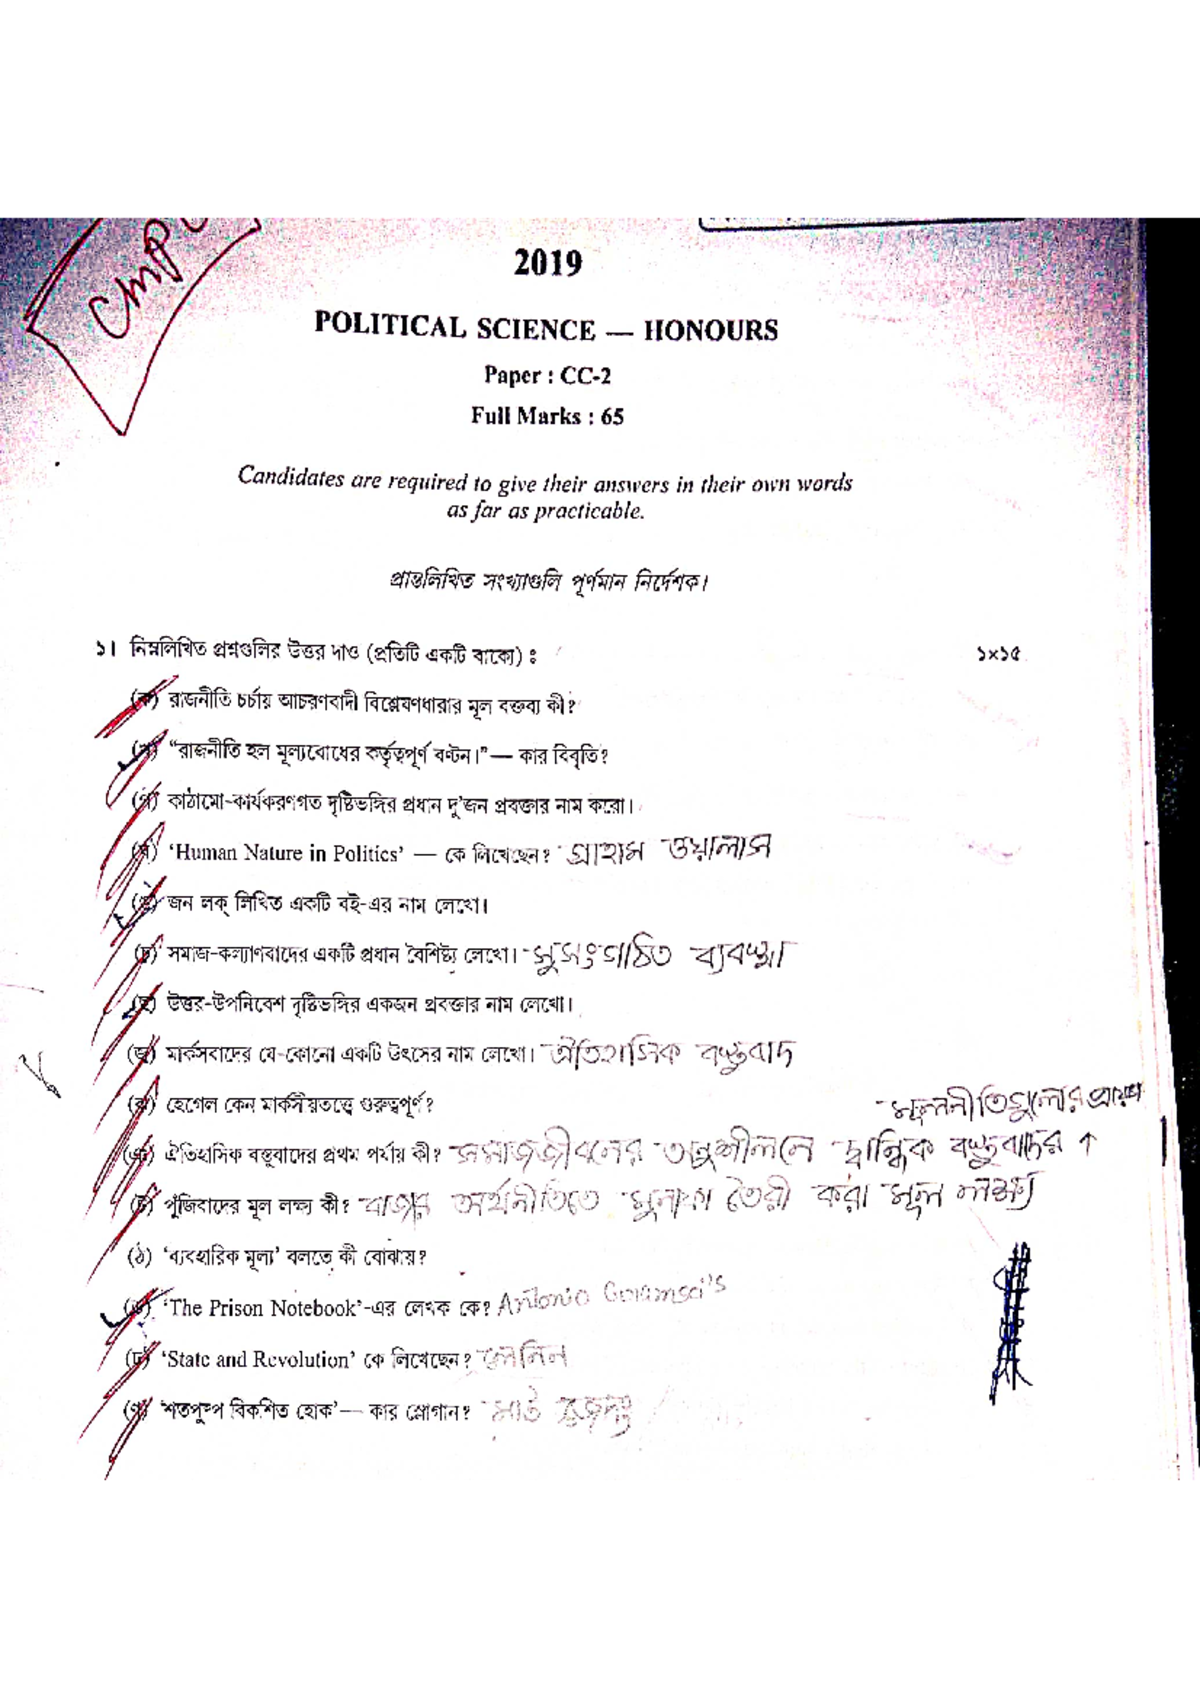 2019
POLITICAL SCIENCE — HONOURS
Paper : CC-2
Full Marks : 65
Candidates are required to give their answers in their own words
as far as practicable.
প্রান্তলিখিত সংখ্যাগুলি পূর্ণমান নির্দেশক।
১। নিম্নলিখিত প্রশ্নগুলির উত্তর দাও (প্রতিটি একটি বাক্যে) : ১×১৫
(ক) রাজনীতি চর্চায় আচরণবাদী বিশ্লেষণধারার মূল বক্তব্য কী?
(খ) “রাজনীতি হল মূল্যবোধের কর্তৃত্বপূর্ণ বণ্টন।”— কার বিবৃতি?
(গ) কাঠামো-কার্যকরণগত দৃষ্টিভঙ্গির প্রধান দু’জন প্রবক্তার নাম করো।
(ঘ) ‘Human Nature in Politics’ — কে লিখেছেন? গ্রাহাম ওয়ালাস
(ঙ) জন লক্ লিখিত একটি বই-এর নাম লেখো।
(চ) সমাজ-কল্যাণবাদের একটি প্রধান বৈশিষ্ট্য লেখো। সুসংগঠিত ব্যবস্থা
(ছ) উত্তর-উপনিবেশ দৃষ্টিভঙ্গির একজন প্রবক্তার নাম লেখো।
(জ) মার্কসবাদের যে-কোনো একটি উৎসের নাম লেখো। ঐতিহাসিক বস্তুবাদ
(ঝ) হেগেল কেন মার্কসীয়তত্ত্বে গুরুত্বপূর্ণ?
মূলনীতিগুলোর প্রয়োগ
(ঞ) ঐতিহাসিক বস্তুবাদের প্রথম পর্যায় কী? সমাজজীবনের অনুশীলনে দ্বান্দ্বিক বস্তুবাদের ↑
(ট) পুঁজিবাদের মূল লক্ষ্য কী? বাজার অর্থনীতিতে মুনাফা তৈরী করা মূল লক্ষ্য
(ঠ) ‘ব্যবহারিক মূল্য’ বলতে কী বোঝায়?
(ড) ‘The Prison Notebook’-এর লেখক কে? Antonio Gramsci's
(ঢ) ‘State and Revolution’ কে লিখেছেন? লেনিন
(ণ) ‘শতপুষ্প বিকশিত হোক’— কার স্লোগান? মাও